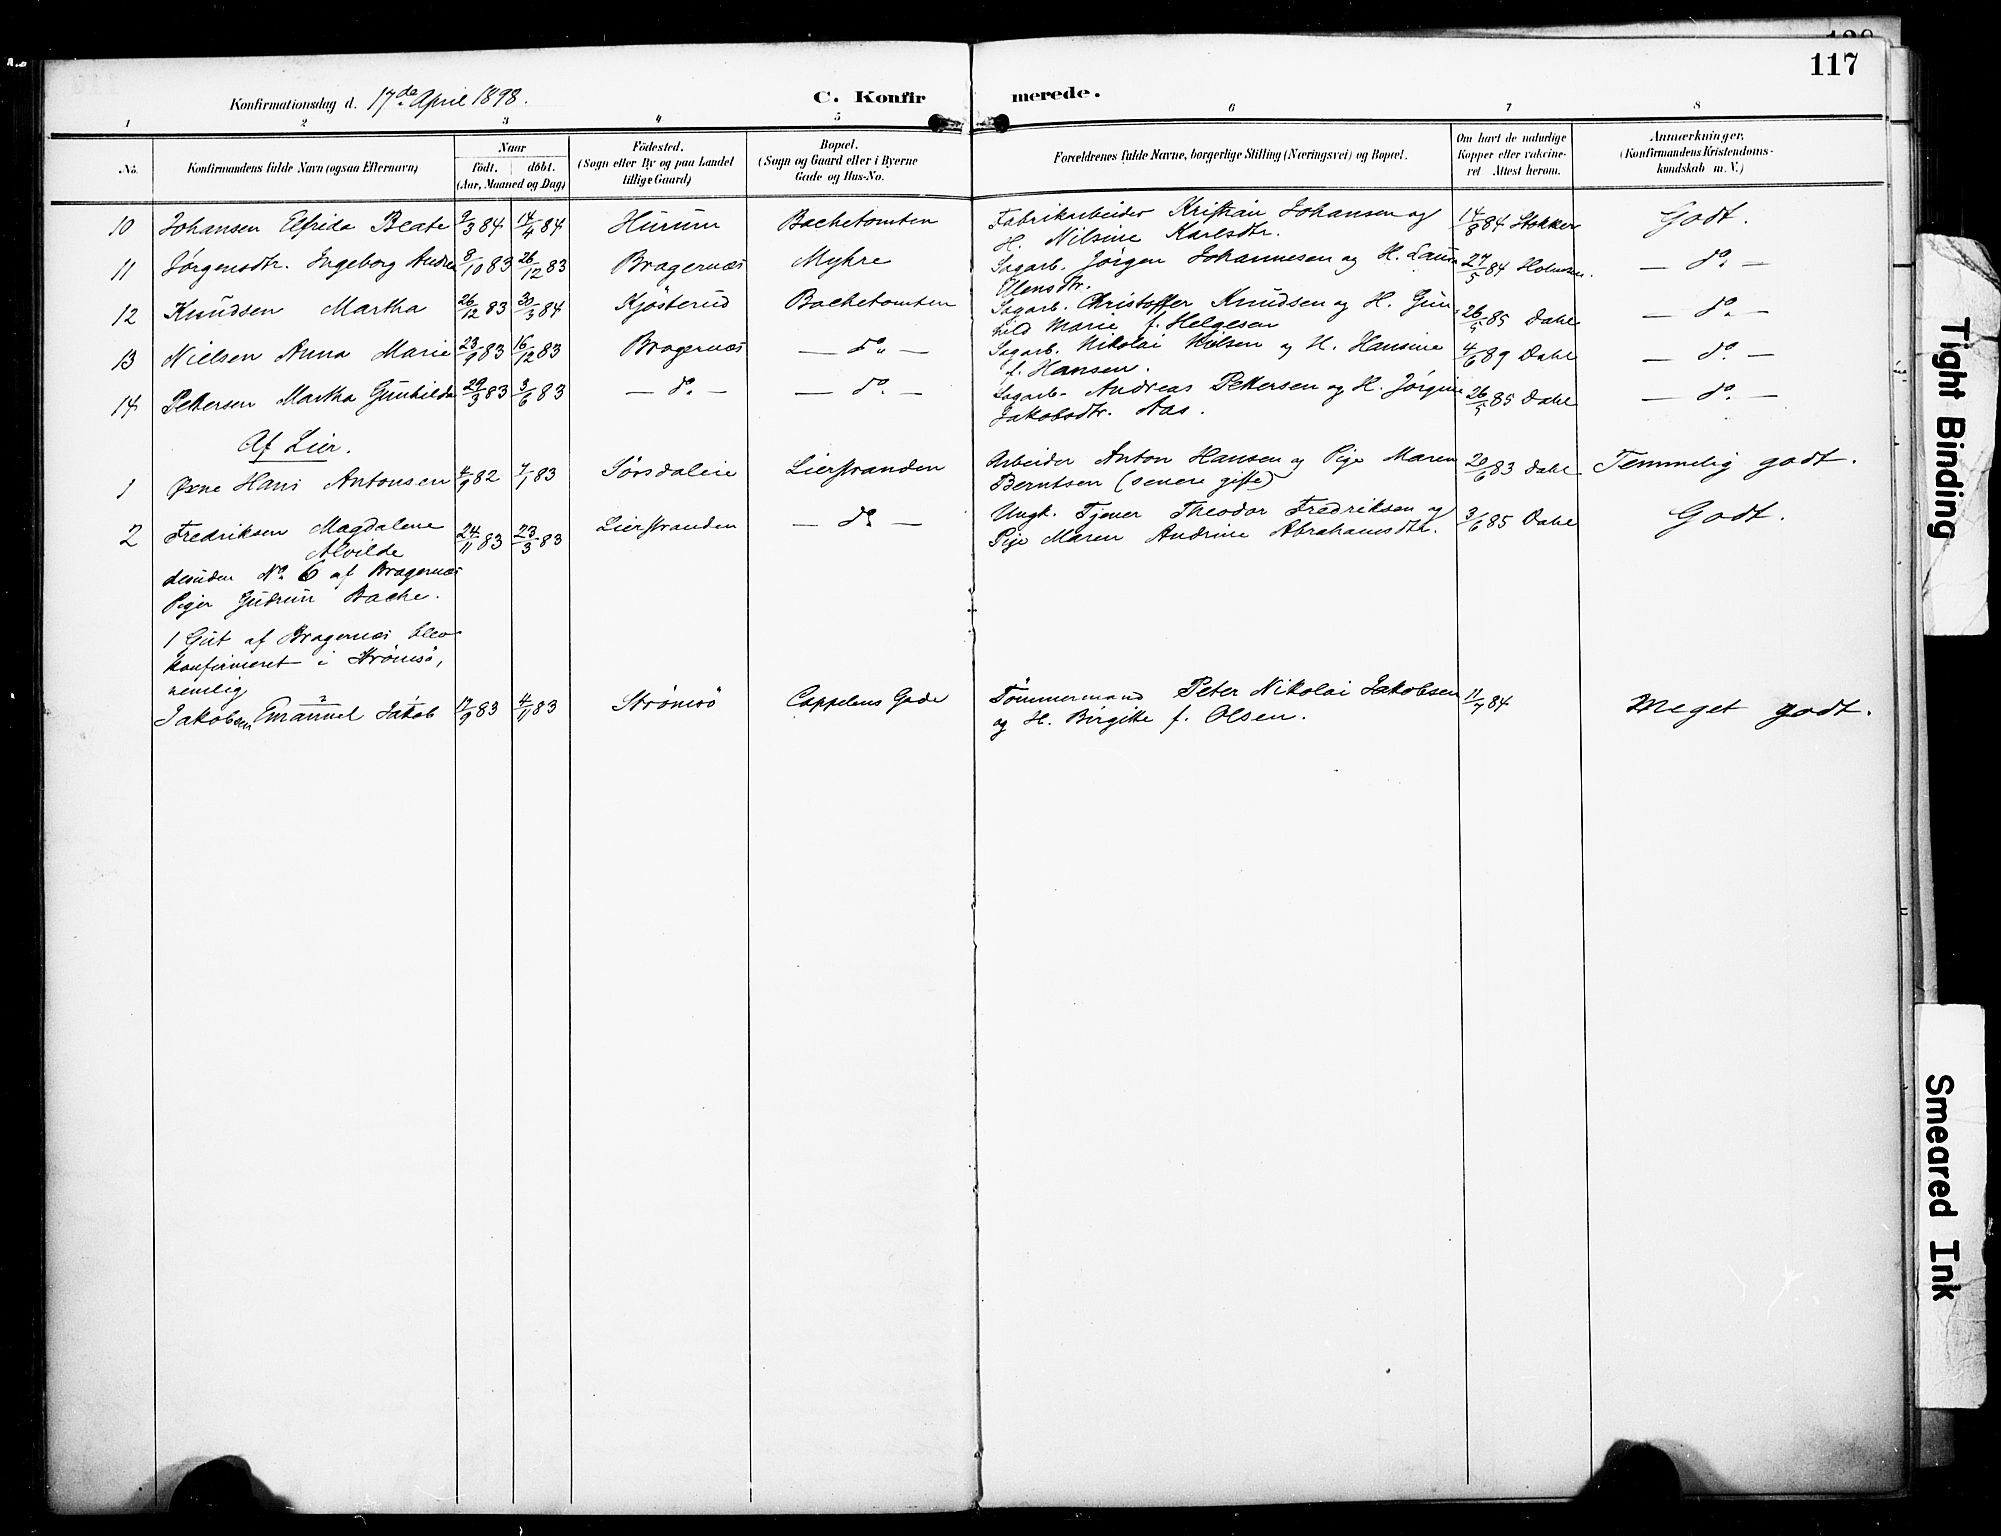 117
Konfirmationsdag d. 17de April 1898.
C. Konfirmerede.
1 2 3 4 5 6 7 8
No. Konfirmandens fulde Navn (ogsaa Efternavn) Naar Födt. döbt. (Aar, Maaned og Dag) Födested. (Sogn eller By og paa Landet tillige Gaard) Bopæl. (Sogn og Gaard eller i Byerne Gade og Hus-No. Forældrenes fulde Navne, borgerlige Stilling (Næringsvei) og Bopæl. Om havt de naturlige Kopper eller vakcineret Attest herom. Anmærkninger, (Konfirmandens Kristendomskundskab m. V.)
10 Johansen Elfrida Beate 9/3 84 14/4 84 Hurum Bachetomten Fabrikarbeider Kristian Johansen og 14/8 84 Stokker Godt.
H. Nilsine Karlsdtr.
11 Jørgensdtr. Ingeborg Andrea 8/10 83 26/12 83 Bragernæs Myhre Sagarb. Jørgen Johannesen og H. Laura 27/5 84 Holmsen. — do. —
Olensdtr.
12 Knudsen Martha 26/12 83 30/3 84 Kjøsterud Bachetomten Sagarb. Christoffer Knudsen og H. Gun- 26/5 85 Dahl — do. —
hild Marie f. Helgesen
13 Nielsen Anna Marie 23/9 83 16/12 83 Bragernæs — do. — Sagarb. Nikolai Nielsen og H. Hansine 4/6 89 Dahl — do. —
f. Hansen.
14 Pettersen Martha Gunhilda 29/3 83 3/6 83 — do. — — do. — Sagarb. Andreas Pettersen og H. Jørgine 26/5 85 Dahl — do. —
Jakobsdtr. Aas.
Af Lier.
1 Øxne Hans Antonsen 4/9 82 7/1 83 Sørsdalen Lierstranden Arbeider Anton Hansen og Pige Maren 20/6 83 Dahl Temmelig godt.
Berntsen (senere gifte)
2 Fredriksen Magdalene 24/11 83 23/3 83 Lierstranden — do. — Ungk. Tjener Theodor Fredriksen og 3/6 85 Dahl Godt.
Alvilde Pige Maren Andrine Abrahamsdtr.
desuden No. 6 af Bragernæs
Piger Gudrun Bache.
1 Gut af Bragernæs blev
konfirmeret i Strømsø,
nemlig
Jakobsen Emanuel Jakob 17/9 83 4/11 83 Strømsø Cappelens Gade Tømmermand Peter Nikolai Jakobsen 11/7 84 Meget godt.
og H. Birgitte f. Olsen.
Tight Binding
Smeared Ink